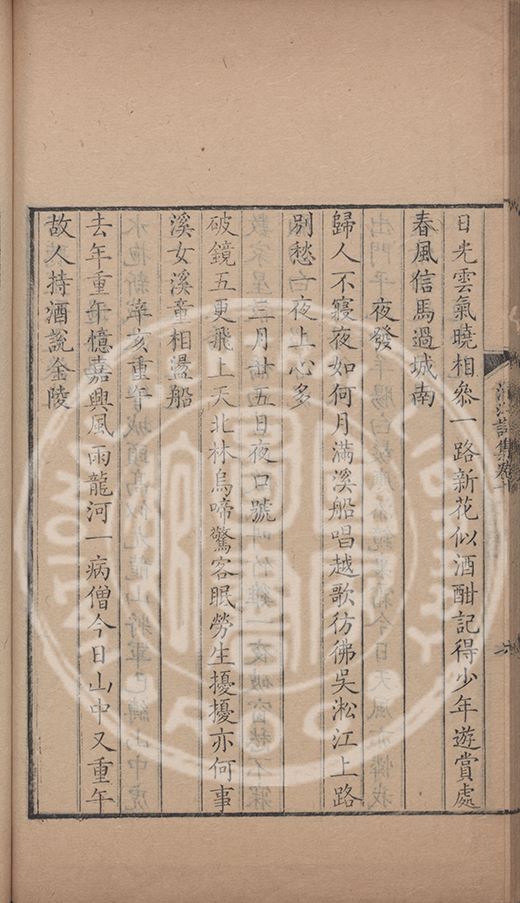 日光雲氣曉相參一路新花似酒酣記得少年遊賞處
春風信馬過城南
夜發
歸人不寢夜如何月滿溪船唱越歌彷彿吳淞江上路
別愁一夜上心多
三月廿五日夜口號
破鏡五更飛上天北林烏啼驚客眠勞生擾擾亦何事
溪女溪童相盪船
辛亥重午
去年重午憶嘉興風雨龍河一病僧今日山中又重午
故人持酒說金陵